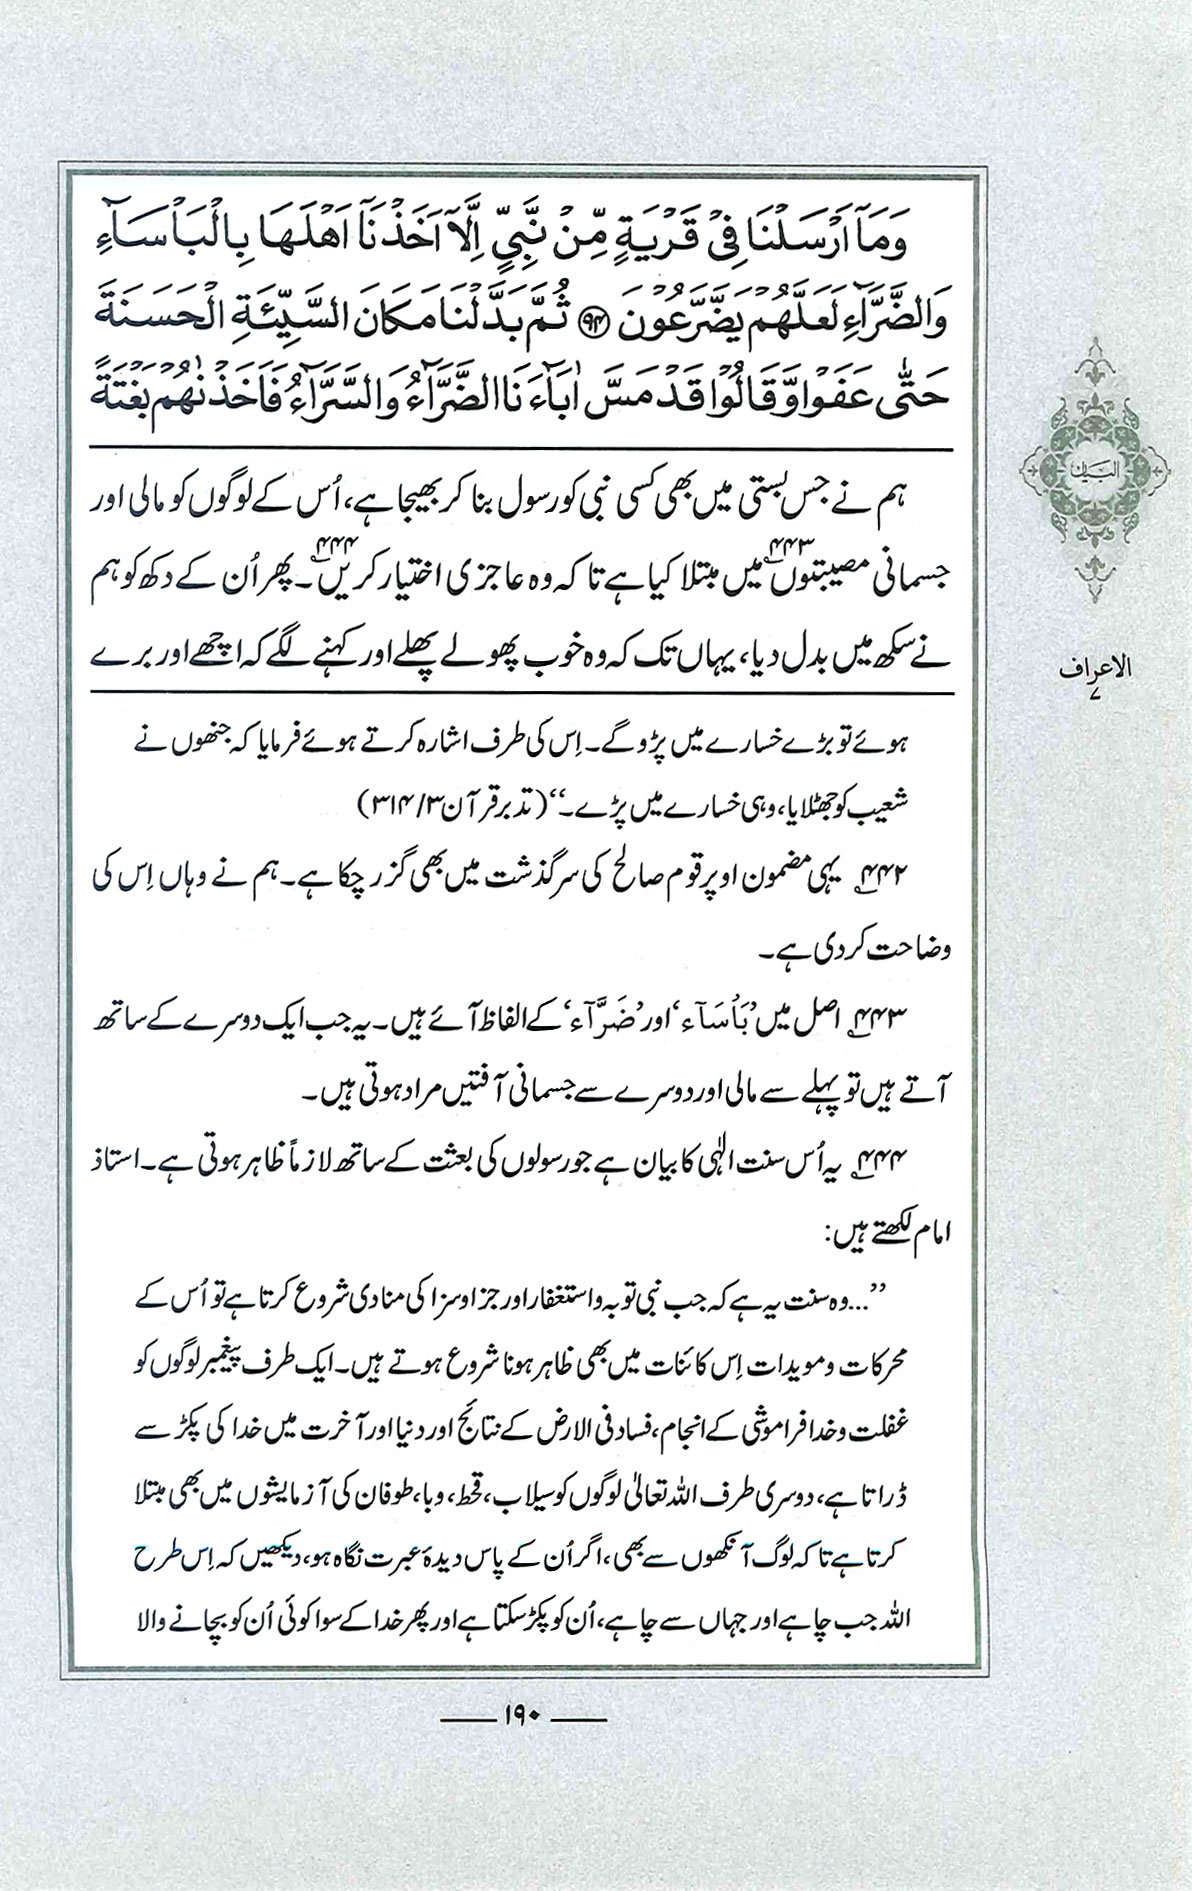 وَمَآ اَرۡسَلۡنَا فِیۡ قَرۡیَةٍ مِّنۡ نَّبِیٍّ اِلَّاۤ اَخَذۡنَاۤ اَهۡلَهَا بِالۡبَاۡسَآءِ
وَالضَّرَّآءِ لَعَلَّهُمۡ یَضَّرَّعُوۡنَ ﴿۹۴﴾ ثُمَّ بَدَّلۡنَا مَکَانَ السَّیِّئَةِ الۡحَسَنَةَ
حَتّٰی عَفَوۡا وَّقَالُوۡا قَدۡ مَسَّ اٰبَآءَنَا الضَّرَّآءُ وَالسَّرَّآءُ فَاَخَذۡنٰهُمۡ بَغۡتَةً
ہم نے جس بستی میں بھی کسی نبی کو رسول بنا کر بھیجا ہے، اُس کے لوگوں کو مالی اور
جسمانی مصیبتوں۴۴۳ میں مبتلا کیا ہے تاکہ وہ عاجزی اختیار کریں۴۴۴۔ پھر اُن کے دکھ کو ہم
نے سکھ میں بدل دیا، یہاں تک کہ وہ خوب پھولے پھلے اور کہنے لگے کہ اچھے اور برے
البیان
الاعراف
۷
ہوئے تو بڑے خسارے میں پڑو گے۔ اِس کی طرف اشارہ کرتے ہوئے فرمایا کہ جنھوں نے
شعیب کو جھٹلایا، وہی خسارے میں پڑے۔‘‘ (تدبرقرآن ۳/ ۳۱۴)
۴۴۲ یہی مضمون اوپر قوم صالح کی سرگذشت میں بھی گزر چکا ہے۔ ہم نے وہاں اِس کی
وضاحت کر دی ہے۔
۴۴۳ اصل میں ’بَاۡسَآء‘ اور ’ضَرَّآء‘ کے الفاظ آئے ہیں۔ یہ جب ایک دوسرے کے ساتھ
آتے ہیں تو پہلے سے مالی اور دوسرے سے جسمانی آفتیں مراد ہوتی ہیں۔
۴۴۴ یہ اُس سنت الٰہی کا بیان ہے جو رسولوں کی بعثت کے ساتھ لازماً ظاہر ہوتی ہے۔ استاذ
امام لکھتے ہیں:
’’...وہ سنت یہ ہے کہ جب نبی توبہ و استغفار اور جزا و سزا کی منادی شروع کرتا ہے تو اُس کے
محرکات و مویدات اِس کائنات میں بھی ظاہر ہونا شروع ہوتے ہیں۔ ایک طرف پیغمبر لوگوں کو
غفلت و خدا فراموشی کے انجام، فساد فی الارض کے نتائج اور دنیا اور آخرت میں خدا کی پکڑ سے
ڈراتا ہے، دوسری طرف اللہ تعالیٰ لوگوں کو سیلاب، قحط، وبا، طوفان کی آزمایشوں میں بھی مبتلا
کرتا ہے تاکہ لوگ آنکھوں سے بھی، اگر اُن کے پاس دیدۂ عبرت نگاہ ہو، دیکھیں کہ اِس طرح
اللہ جب چاہے اور جہاں سے چاہے، اُن کو پکڑ سکتا ہے اور پھر خدا کے سوا کوئی اُن کو بچانے والا
۱۹۰